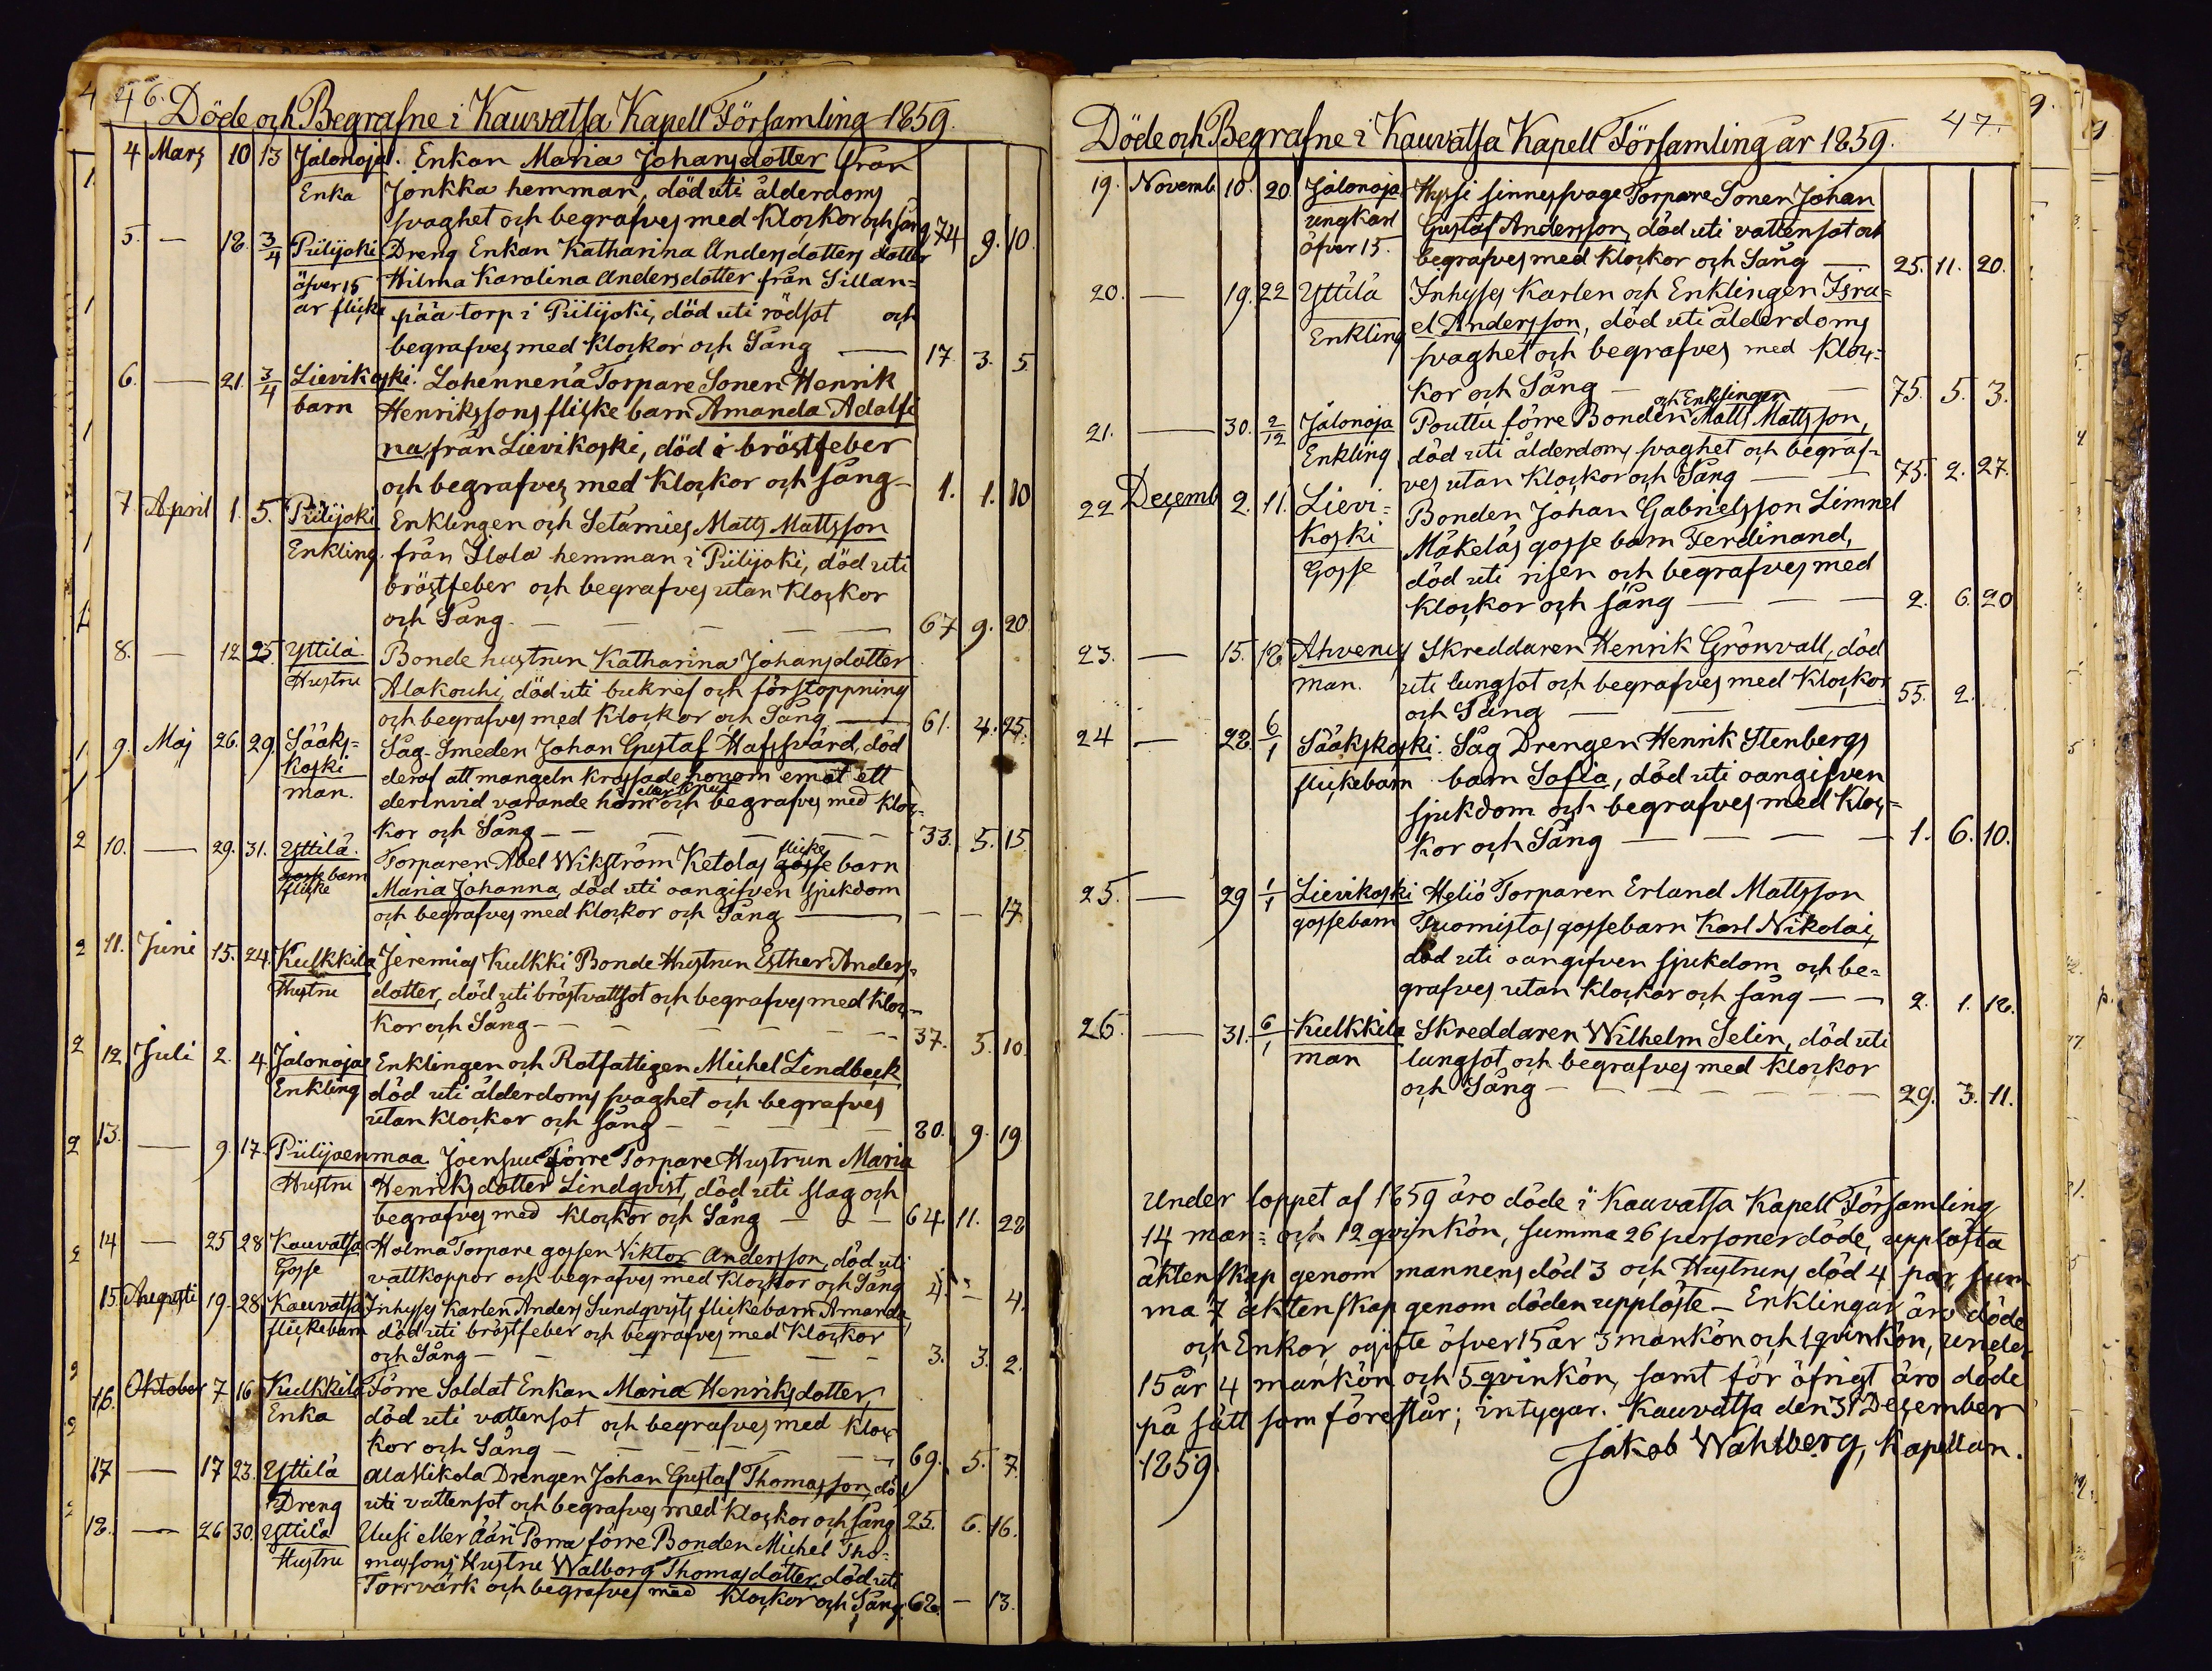 46.
Döde och Begrafne i Kauvatsa Kapell Församling 1859.
4 Mars 10 13 Jalonoja. Enkan Maria Johansdotter från
Enka Jonkka hemman, död uti ålderdoms
svaghet och begrafves med klockor och sång 74 9. 10.
5. — 18. 3/4 Piilijoki Dreng Enkan Katharina Andersdotters dotter
öfver 15 Hilma Karolina Andersdotter från Sillan=
år flicka pää torp i Piilijoki, död uti rödsot och
begrafves med klockor och Sång — 17. 3. 5.
6. — 21. 3/4 Lievikoski. Lahennenä Torpare Sonen Henrik
barn Henrikssons flicke barn Amanda Adolfi
na från Lievikoski, död i bröstfeber
och begrafves med klockor och sång — 1. 1. 10
7. April 1. 5. Piilijoki Enklingen och Setämies Matts Mattsson
Enkling. från Ilola hemman i Piilijoki, död uti
bröstfeber och begrafves utan klockor
och Sång. — — — — 67 9. 20
8. — 12 25. Yttilä. Bonde hustrun Katharina Johansdotter
Hustru Alakouhi, död uti bukref och förstoppning
och begrafves med klockor och Sång — 61. 4. 25.
9. Maj 26. 29. Sääks= Såg-Smeden Johan Gustaf Hafssvärd, död
koski deraf att mangeln krossade honom emot ett
man. derinvid varande hörn och begrafves med kloc=
kor och Sång — — — — 33. 5. 15.
10. — 29. 31. Yttilä. Torparen Abel Wikström Ketolas gosse flicke barn
gosse barn flicke Maria Johanna, död uti oangifven sjukdom
och begrafves med klockor och Sång — — — 17.
11. Juni 15. 24. Kulkkila Jeremias Kulkki Bonde Hustrun Esther Anders=
Hustru dotter, död uti bröstvattsot och begrafves med kloc=
kor och Sång — — — — — 37. 5. 10.
12. Juli 2. 4. Jalonoja Enklingen och Rotfattigen Michel Lindbeck,
Enkling död uti ålderdoms svaghet och begrafves
utan klockor och sång — — — — 80. 9. 19
13. — 9. 17. Piilijoenmaa. Joensuu förre Torpare Hustrun Maria
Hustru Henriksdotter Lindqvist, död uti slag och
begrafves med klockor och Sång — — — 64. 11. 28
14 — 25 28 Kauvatsa Holma Torpare gossen Viktor Andersson, död uti
Gosse vattkoppor och begrafves med klockor och Sång 4. — 4.
15. Augusti 19. 28. Kauvatsa Inhyses Karlen Anders Sundqvists flickebarn Amanda,
flickebarn död uti bröstfeber och begrafves med klockor
och Sång — — — — — 3. 3. 2.
16. Oktober 7 16 Kulkkila Förre Soldat Enkan Maria Henriksdotter,
Enka död uti vattensot och begrafves med kloc
kor och Sång — — — — 69. 5. 7.
17 — 17 23. Yttilä Ala Nikola Drengen Johan Gustaf Thomasson, död
Dreng uti vattensot och begrafves med klockor och sång 25. 6. 16.
18. — 26 30. Yttilä Uusi eller Ääri Porra förre Bonden Michel Tho=
Hustru massons Hustru Walborg Thomasdotter, död uti
Torrvärk och begrafves med klockor och Sång. 62. — 13.
47.
Döde och Begrafne i Kauvatsa Kapell Församling år 1859.
19. Novemb. 10. 20. Jalonoja Hyssi sinnessvage Torpare Sonen Johan
ungkarl Gustaf Andersson, död uti vattensot och
öfver 15. begrafves med klockor och Sång — 25. 11. 20.
20. — 19. 22 Yttilä Inhyses Karlen och Enklingen Isra=
Enkling el Andersson, död uti ålderdoms
svaghet och begrafves med kloc=
kor och Sång — — 75. 5. 3.
21. — 30. 2/12 Jalonoja Pouttu förre Bonden och Enklingen Matts Mattsson,
Enkling död uti ålderdoms svaghet och begraf=
ves utan klockor och Sång — — 75. 2. 27.
22 Decemb. 2. 11. Lievi= Bonden Johan Gabrielsson Limnel
koski Mäkeläs gosse barn Ferdinand,
Gosse död uti risen och begrafves med
klockor och sång — — — 2. 6. 20
23. — 15. 18 Ahvenus Skreddaren Henrik Grönvall, död
man. uti lungsot och begrafves med klockor
och Sång — — — 55. 2.
24 — 28. 6/1 Sääkskoski. Såg Drengen Henrik Stenbergs
flickebarn barn Sofia, död uti oangifven
sjukdom och begrafves med kloc=
kor och Sång — — — — 1. 6. 10.
25. — 29 1/1 Lievikoski Heliö Torparen Erland Mattsson
gossebarn Tuomistas gossebarn Karl Nikolai,
död uti oangifven sjukdom och be=
grafves utan klockor och sång — — 2. 1. 18.
26. — 31. 6/1 Kulkkila Skreddaren Wilhelm Selin, död uti
man lungsot och begrafves med klockor
och Sång — — — — — 29. 3. 11.
Under loppet af 1859 äro döde i Kauvatsa Kapell Församling
14 man= och 12 qvinkön, summa 26 personer döde, upplösta
äktenskap genom mannens död 3 och Hustruns död 4 par, sum
ma 7 äktenskap genom döden upplöste — Enklingar äro döde
och Enkor, ogifte öfver 15 år 3 mankön och 1 qvinkön, under
15 år 4 mankön och 5 qvinkön, samt för öfrigt äro döde
på sätt som förestår; intygar. Kauvatsa den 31 December
1859. Jakob Wahlberg, Kapellan.